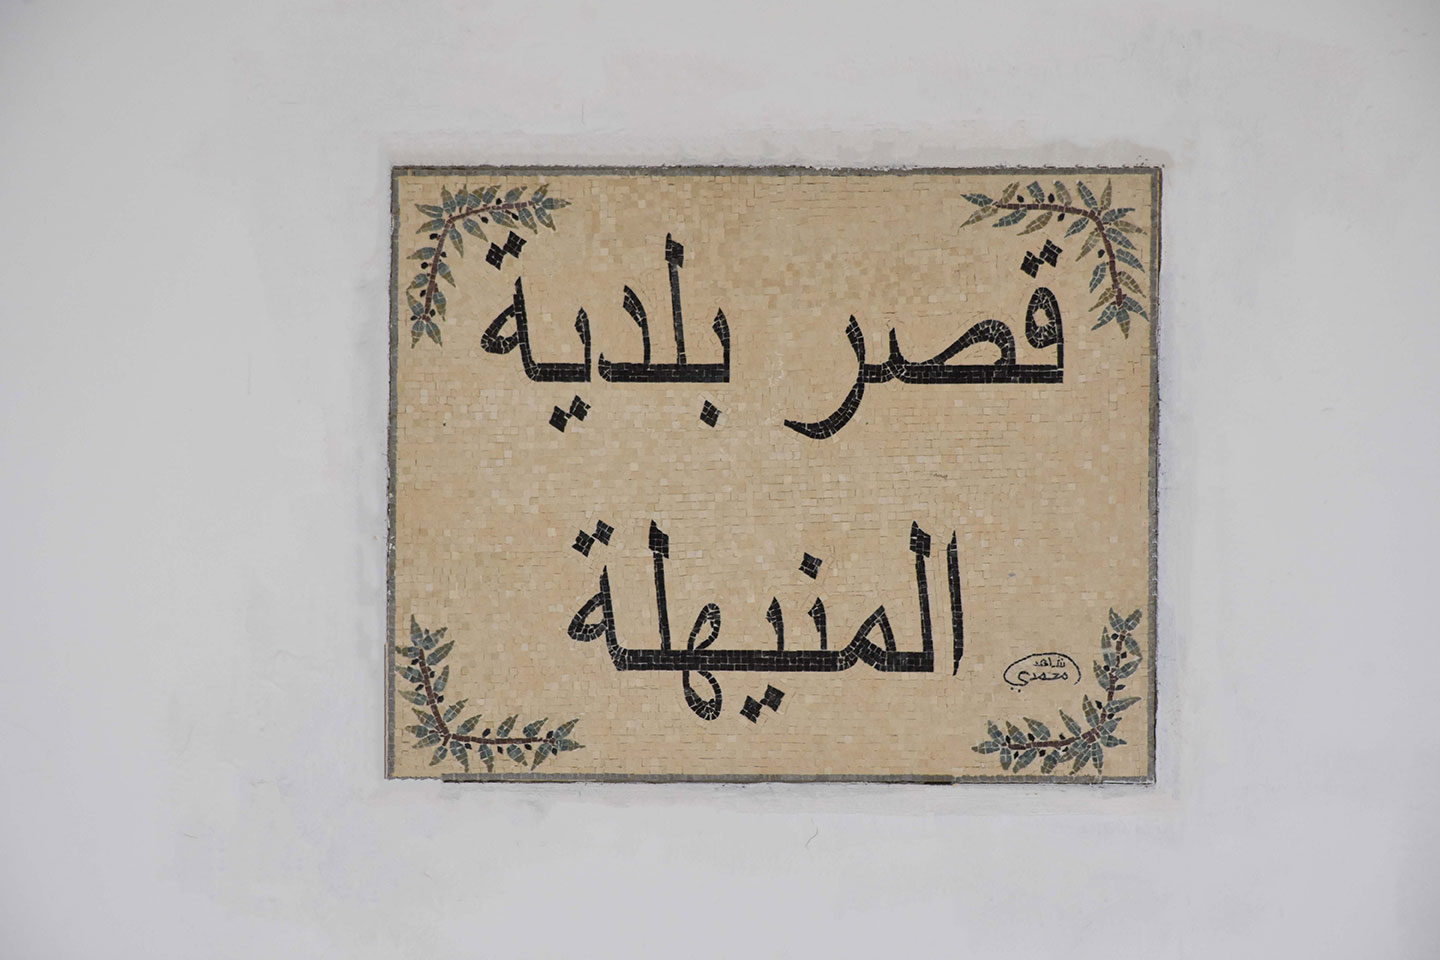 قصر بلدية
المنيهلة
شاهد
محمدي